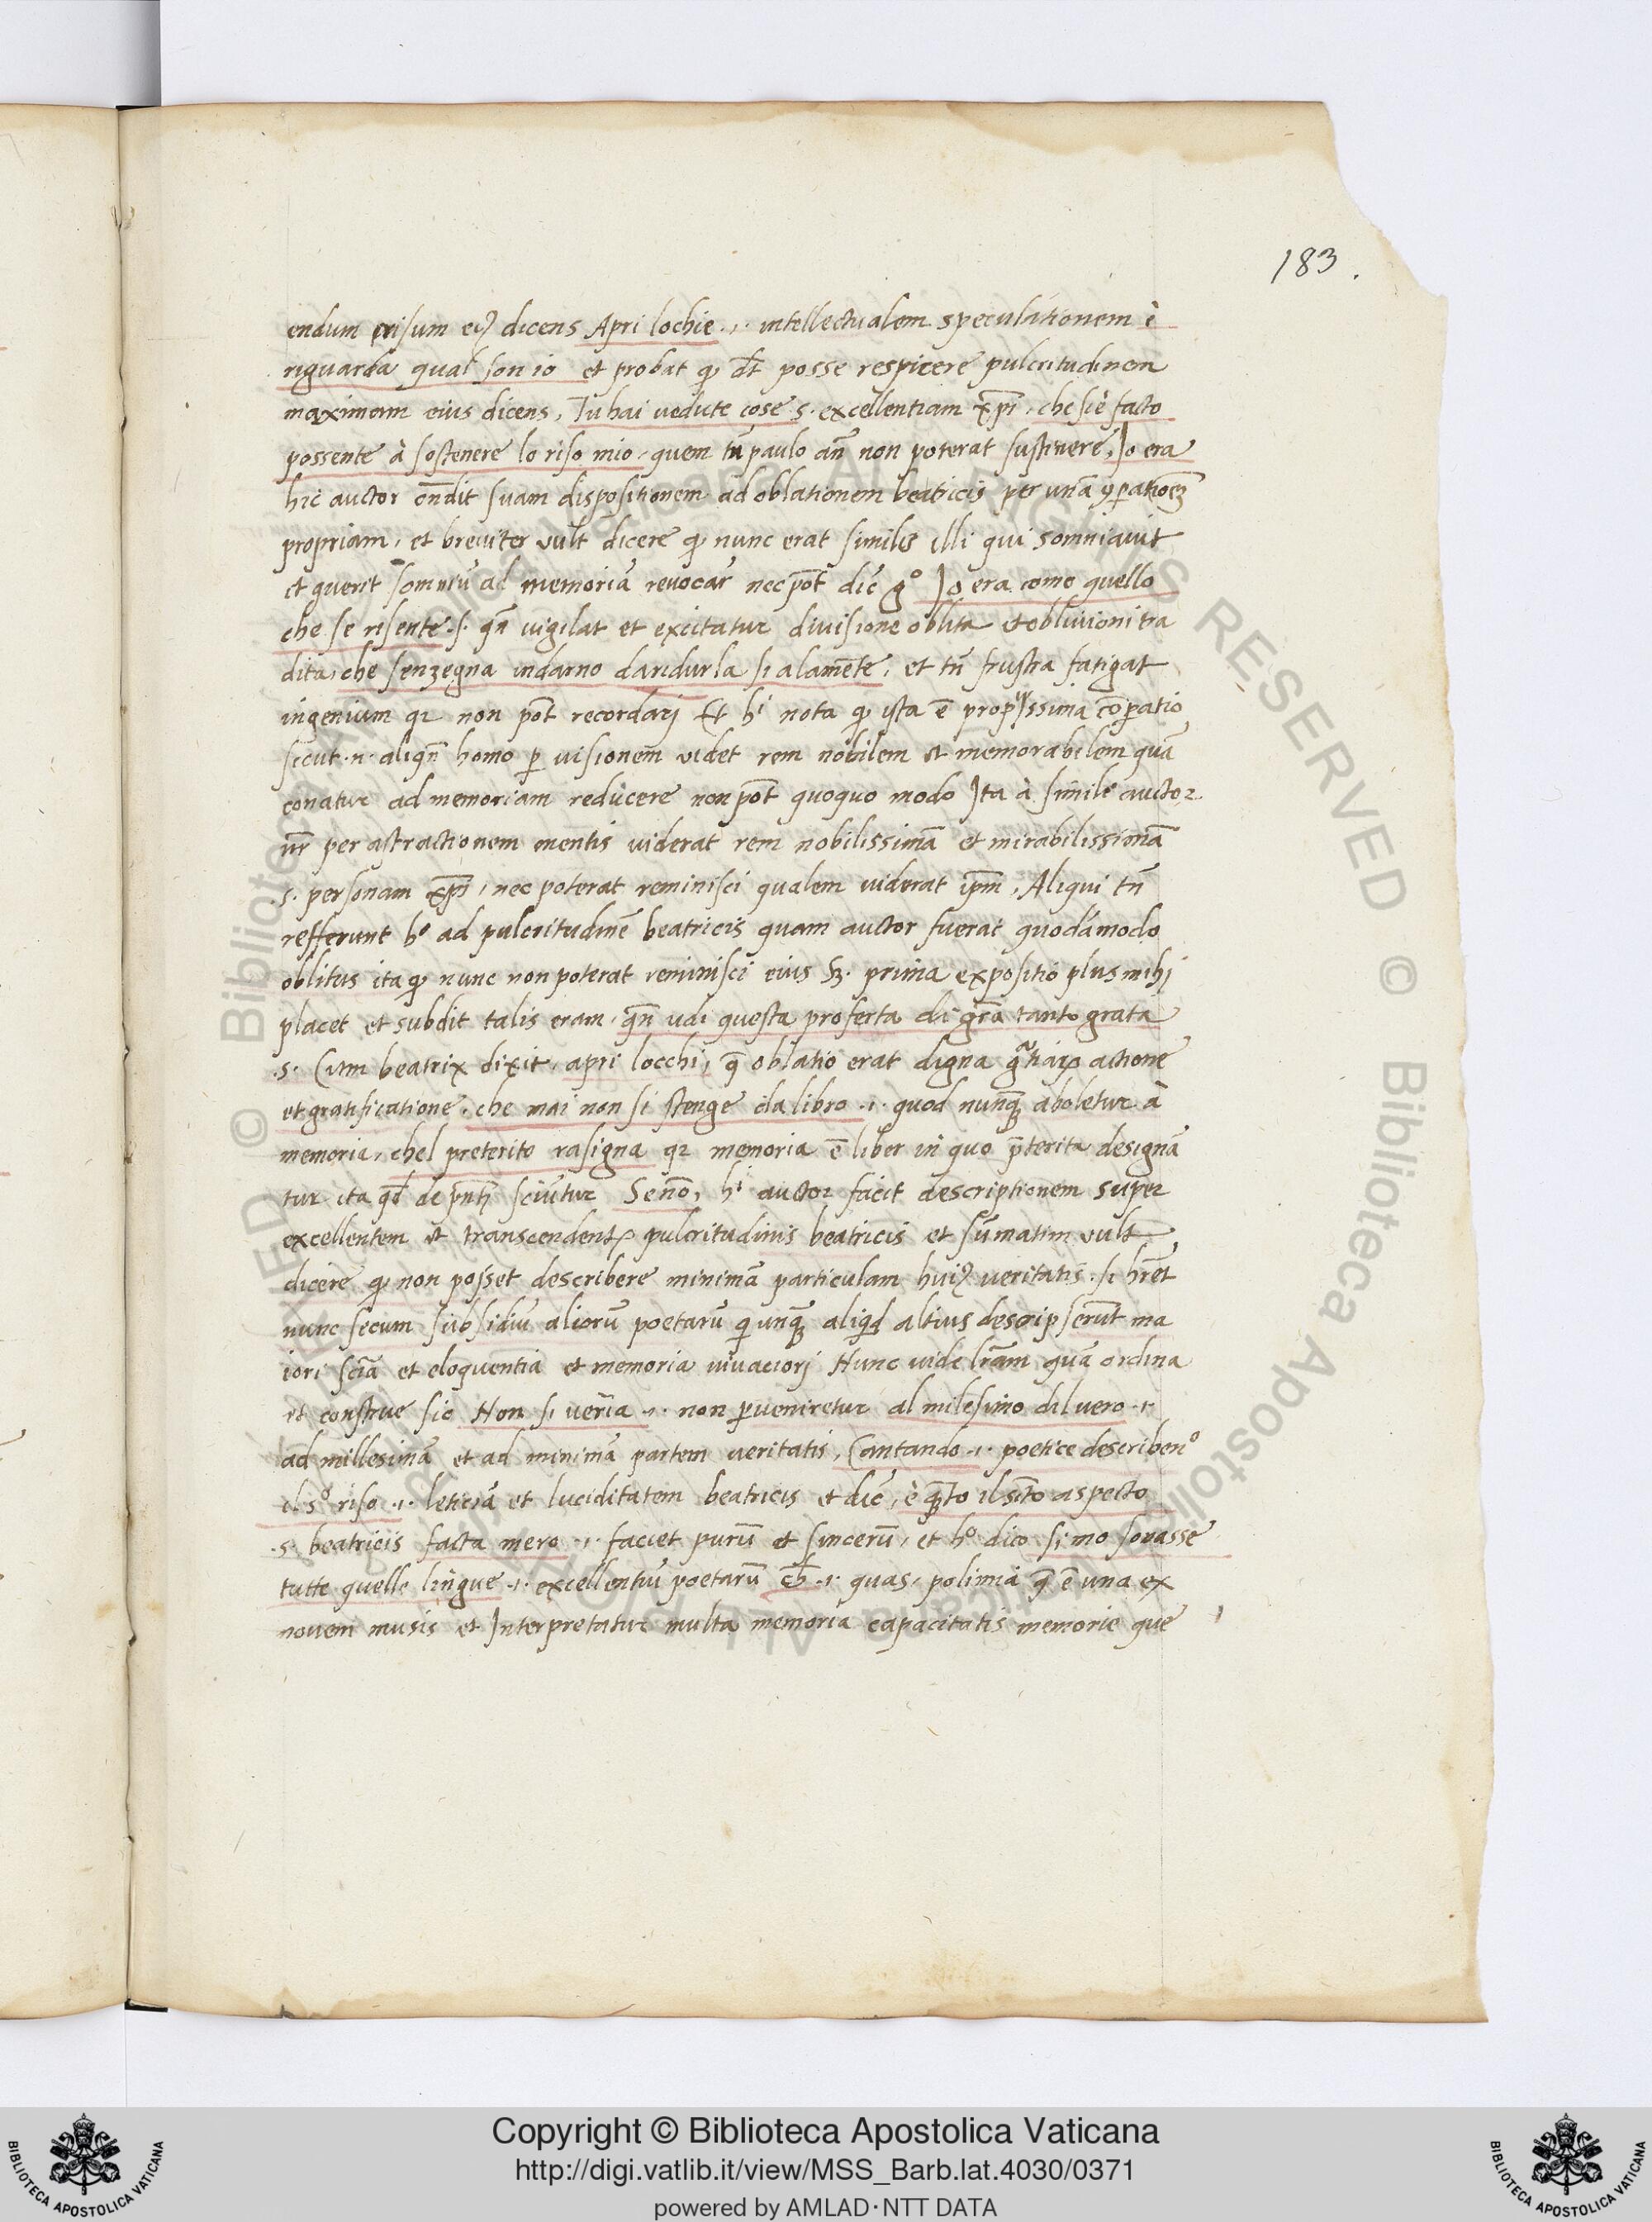 183.
endum risum eiꝰ dicens Apri lochie .i. intellectualem speculationem è
riguarda qual son io et probat qͥ dꝫ posse respicere pulcritudinem
maximam eius dicens, Tu hai vedute cose s. excellentiam xp̄i, che siè facto
possente à sostenere lo riso mio, quem tn̄ paulo an̄ non poterat sustinere, Io era
hic auctor on̄dit suam dispositionem ad oblationem beatricis per unā ꝯparatioēꝫ
propriam, et breviter vult dicere qͥ nunc erat similis illi qui somniavit
et querit somniū ad memoriā revocar̄ nec pōt dic̄ gº Io era como quello
che se risente .s. qn̄ vigilat et excitatur divisione oblita et oblivioni tra
dita, che senzegna indarno daridurla si alamēte, et tn̄ frustra fatigat
ingenium qꝛ non pōt recordarj Et hͥ nota qͥ ysta ē propiissima cōꝑatio
sicut .n. aliqn̄ homo ꝑ visionem videt rem nobilem et memorabilem quā
conatur ad memoriam reducere non pōt quoquo modo Ita à simile auctor
nr̄ per astractionem mentis viderat rem nobilissimā et mirabilissimā
.s. personam xp̄i, nec poterat reminisci qualem viderat ip̄m, Aliqui tn̄
refferunt hº ad pulcritudinē beatricis quam auctor fuerat quodāmodo
oblitus ita qͥ nunc non poterat reminisci eius Sꝫ. prima expositio plus mihj
placet et subdit talis eram, qn̄ udi questa proferta di grā tanto grata
.s. Cum beatrix dixit, apri locchi, q̄ oblatio erat digna gr̄tiaꝝ actione
et gratificatione, che mai non si stenge da libro .i. quod nunqꝫ aboletur à
memoria, chel preterito rasigna qꝛ memoria ē liber in quo p̄terita designā
tur ita qd̄ de pn̄ti sciūtur Se nō, hͥ auctor facit descriptionem super
excellentem et transcendentꝭ pulcritudinis beatricis et sūmatim vult
dicere qͥ non posset describere minimā particulam huiꝰ veritatis, si hr̄et
nunc secum subsidiū aliorū poetarū qͥ unqꝫ aliqͥd altius descripserūt ma
iori sciā et eloquentia et memoria vivaciorj Hunc vide lr̄am quā ordina
et construe sic Non si veria .i. non ꝑveniretur al milesimo dil vero .i.
ad millesimā et ad minimā partem veritatis, Cantando .i. poetice describenº
il sº riso .i. leticiā et luciditatem beatricis et dic̄, è qꝫto il sc̄to aspecto
.s. beatricis facta mero .i. faciet purū et sincerū, et hº dico si mo sonasse
tutte quelle lingue .i. excellentiū poetarū cħ .i. quas, polimia q̄ ē una ex
novem musis et Interpretatur multa memoria capacitatis memorie que
Copyright © Biblioteca Apostolica Vaticana
http://digi.vatlib.it/view/MSS_Barb.lat.4030/0371
powered by AMLAD·NTT DATA